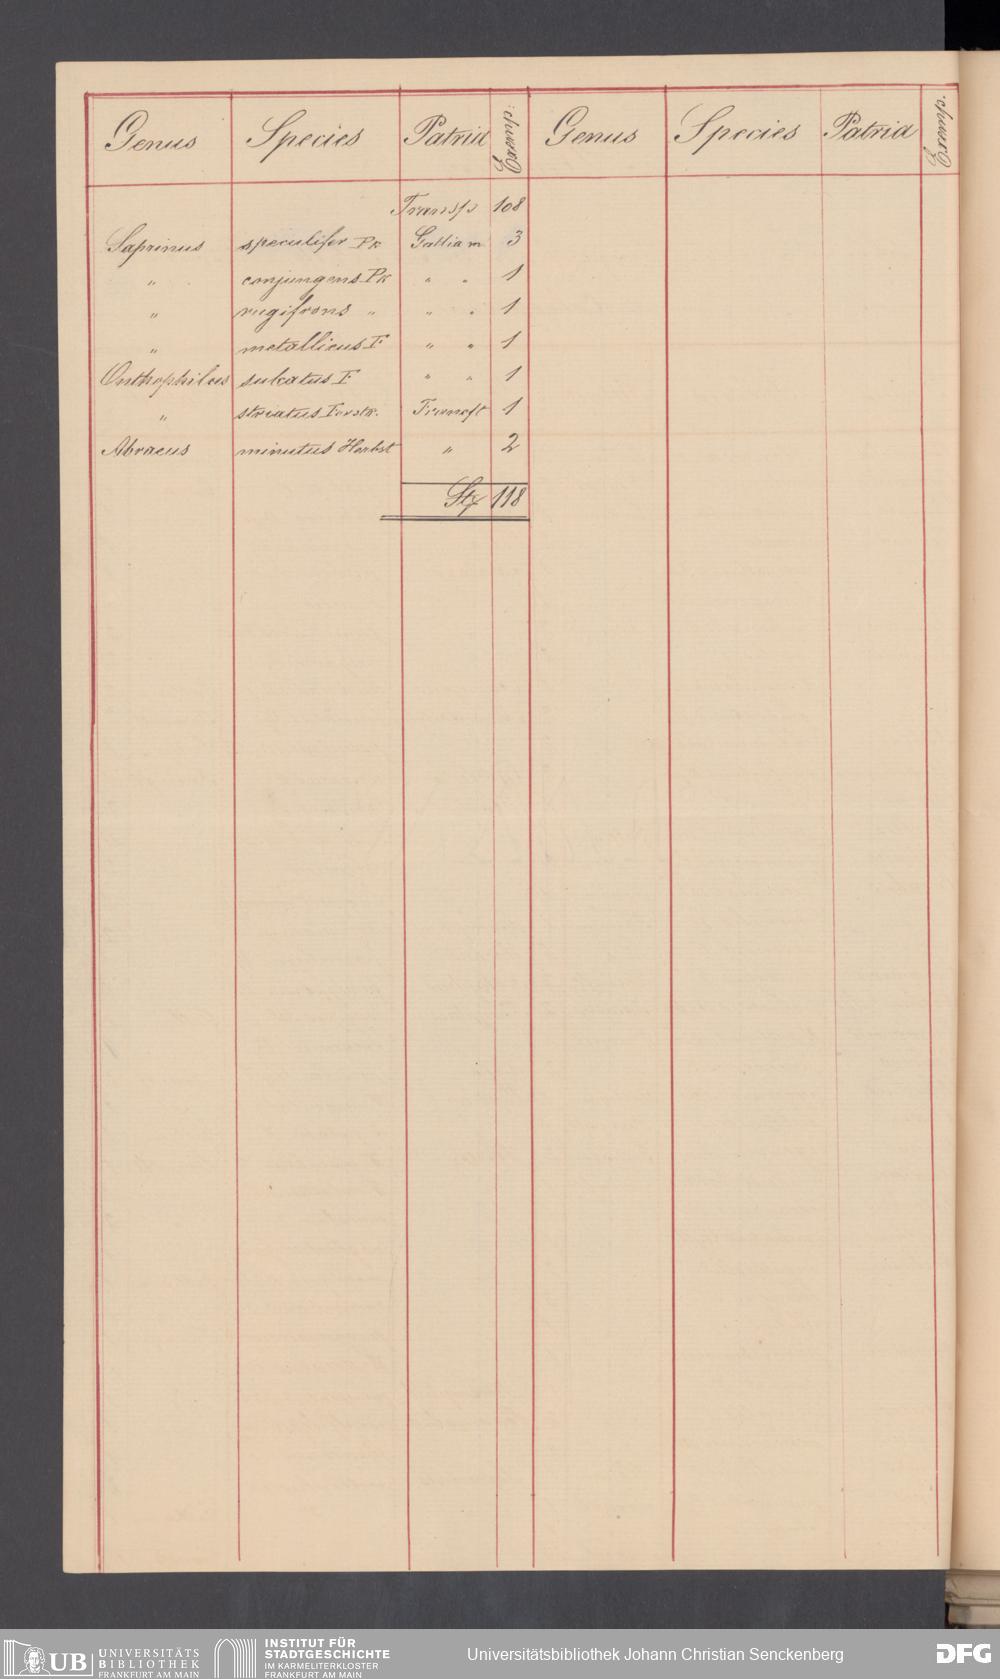 Genus Species Patria Exemp: Genus Species Patria Exemp.
Transp 108
Saprinus speculifer Pk Gallia m 3
" conjungens Pk " " 1
" rugifrons " " " 1
" metallicus F " " 1
Onthophilus sulcatus F " " 1
" striatus Forstr. Francft 1
Abraeus minutus Herbst " 2
Stz 118
UB UNIVERSITÄTS
BIBLIOTHEK
FRANKFURT AM MAIN
INSTITUT FÜR
STADTGESCHICHTE
IM KARMELITERKLOSTER
FRANKFURT AM MAIN
Universitätsbibliothek Johann Christian Senckenberg
DFG